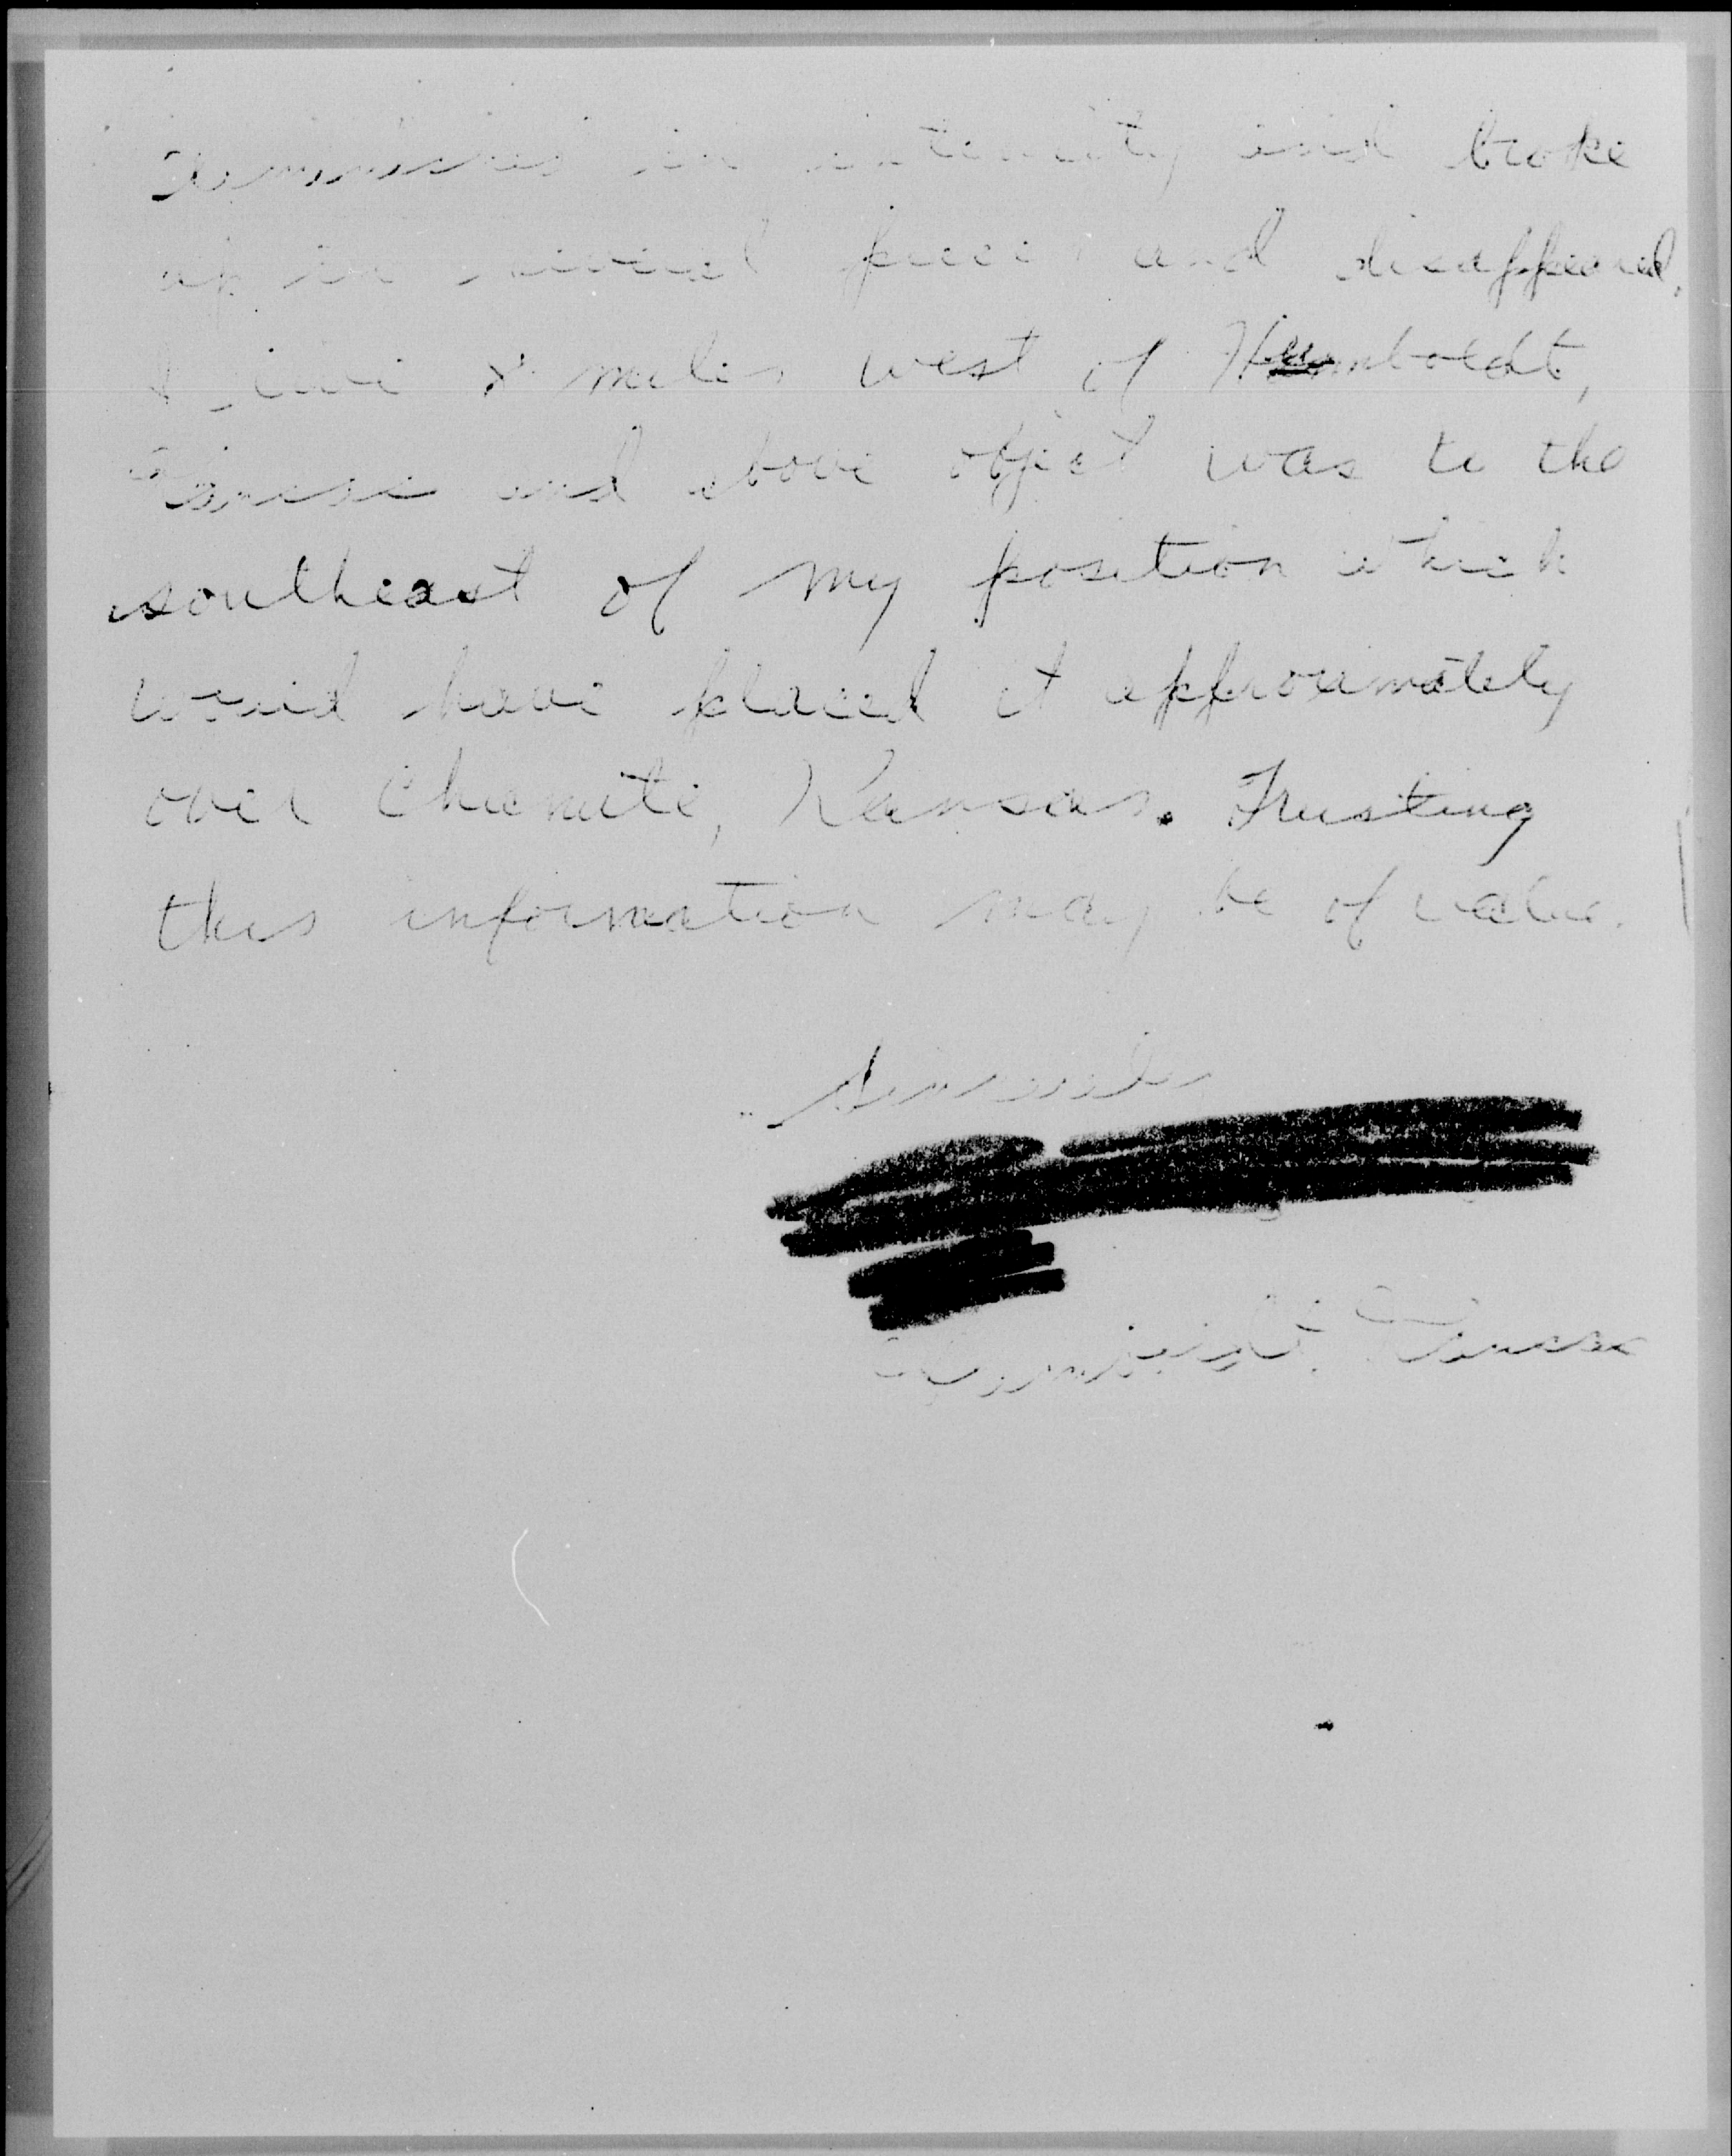 diminishes in intensity and broke
up in several pieces and disappeared.
I live miles west of Humboldt,
Kansas and above object was to the
southeast of my position which
would have placed it approximately
over Chanute, Kansas. Trusting
this information may be of value.
Sincerely
Humboldt, Kansas